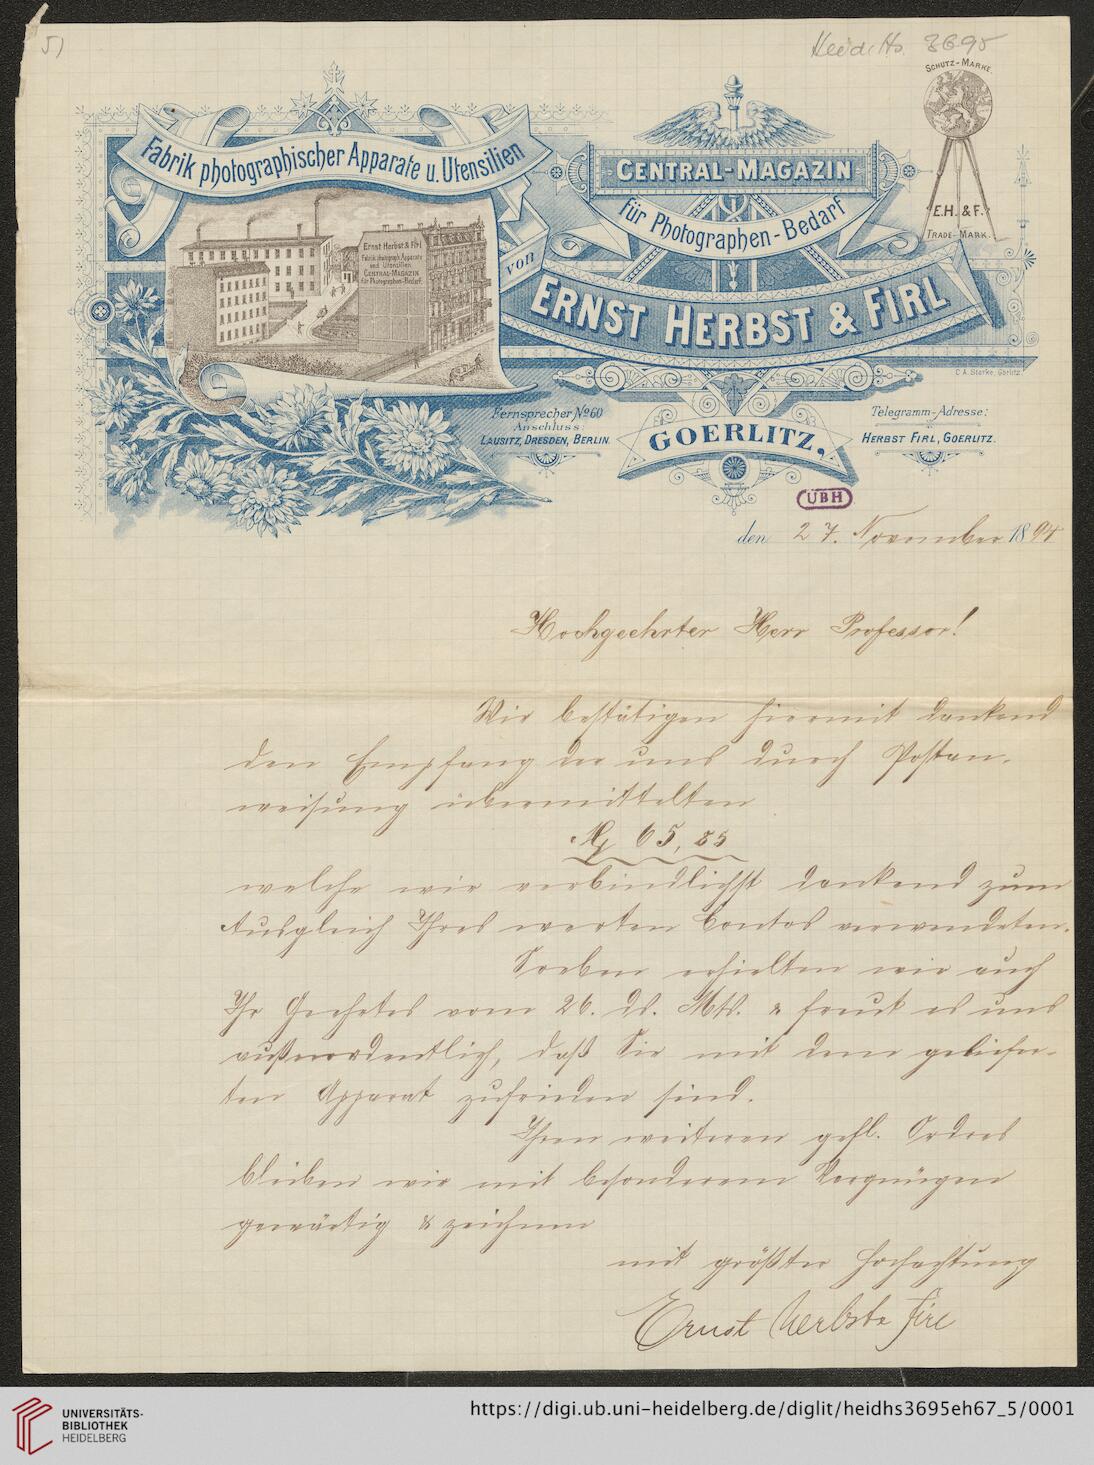 5)
Heid. Hs. 3695
SCHUTZ-MARKE.
E.H. & F.
TRADE-MARK.
Fabrik photographischer Apparate u. Utensilien
von
CENTRAL-MAGAZIN
für Photographen-Bedarf
ERNST HERBST & FIRL
Ernst Herbst & Firl
Fabrik photograph. Apparate
und Utensilien
CENTRAL-MAGAZIN
für Photographen-Bedarf.
C.A. Starke, Görlitz.
Fernsprecher No 60
Anschluss:
LAUSITZ, DRESDEN, BERLIN.
GOERLITZ,
Telegramm-Adresse:
HERBST FIRL, GOERLITZ.
UBH
den 27. November 189
Hochgeehrter Herr Professor!
Wir bestätigen hiermit dankend
den Empfang der uns durch Postan-
weisung übermittelten
M 65,85
welche wir verbindlichst dankend zum
Ausgleich Ihres werten Contos verwendeten.
Soeben erhielten wir auch
Ihr Geehrtes vom 26. ds. Mts. & freut es uns
außerordentlich, daß Sie mit dem geliefer-
ten Apparat zufrieden sind.
Ihren weiteren gefl. Ordres
bleiben wir mit besonderem Vergnügen
gewärtig & zeichnen
mit größter Hochachtung
Ernst Herbst & Firl
UNIVERSITÄTS-
BIBLIOTHEK
HEIDELBERG
https://digi.ub.uni-heidelberg.de/diglit/heidhs3695eh67_5/0001